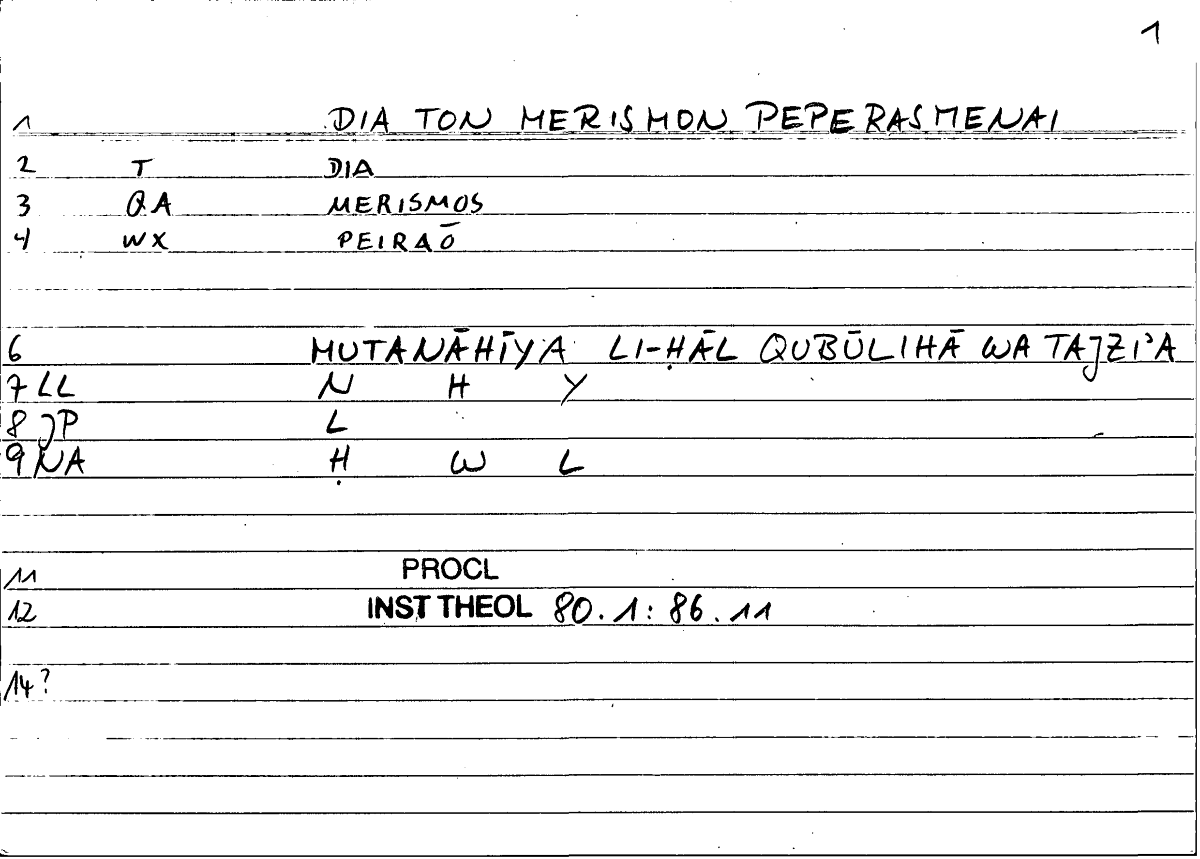 1
1 DIA TON MERISMON PEPERASMENAI
2 T DIA
3 QA MERISMOS
4 WX PEIRAŌ
6 MUTANĀHĪYA LI-ḤĀL QUBŪLIHĀ WA TAJZI'A
7 LL N H Y
8 JP L
9 NA Ḥ W L
11 PROCL
12 INST THEOL 80.1: 86.11
14?